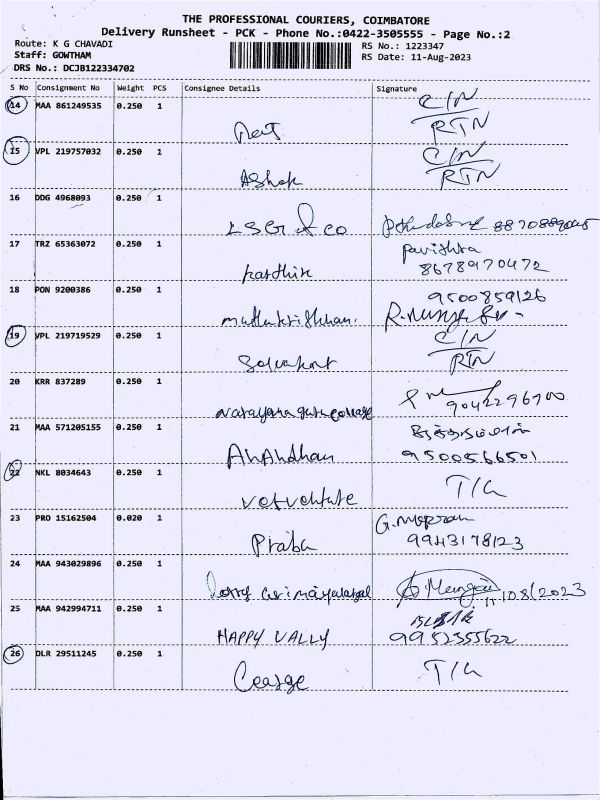 THE PROFESSIONAL COURIERS, COIMBATORE
Delivery Runsheet - PCK - Phone No.:0422-3505555 - Page No.:2
Route: K G CHAVADI
RS No.: 1223347
Staff: GOWTHAM
RS Date: 11-Aug-2023
DRS No.: DCJB122334702
S No Consignment No Weight PCS Consignee Details Signature
14 MAA 861249535 0.250 1 C/N
RTN
15 VPL 219757032 0.250 1 C/N
Ashok RTN
16 DDG 4968093 0.250 1
LSG & co
17 TRZ 65363072 0.250 1 Pavithra
karthik 8678970472
18 PON 9200386 0.250 1 9500859126
muthukrishnan.
19 VPL 219719529 0.250 1 C/N
RTN
20 KRR 837289 0.250 1
9042296700
21 MAA 571205155 0.250 1
ANANdhan 9500566501
22 NKL 8034643 0.250 1
23 PRO 15162504 0.020 1
Praba 9943178123
24 MAA 943029896 0.250 1
11/08/2023
25 MAA 942994711 0.250 1
HAPPY VALLY 9952355622
26 DLR 29511245 0.250 1